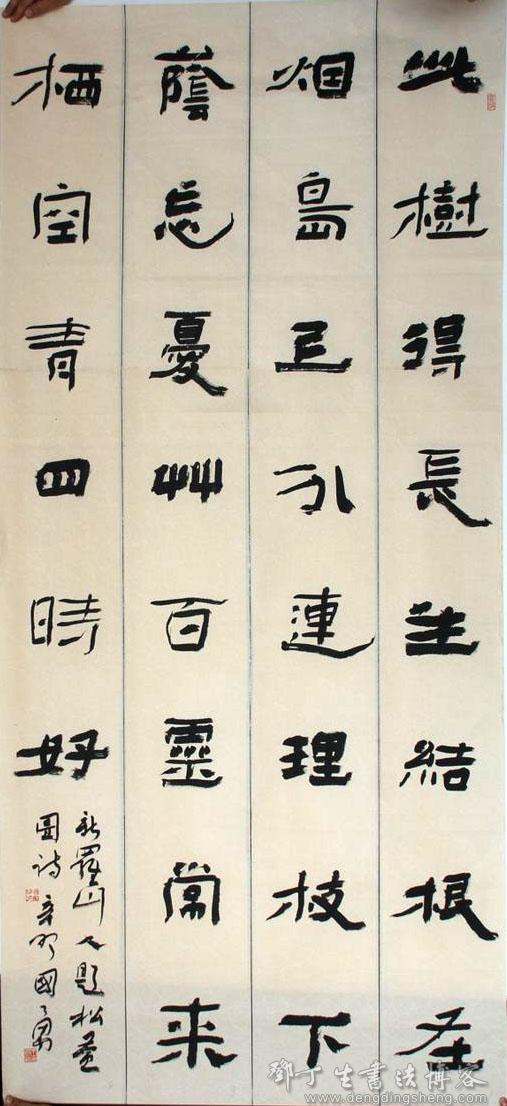 此樹得長生結根在
烟島上引連理枝下
蔭忘憂艸百靈常来
栖空青四時好
新羅山人題松畫
圖詩 辛卯國勇
鄧丁生書法博客
www.dengdingsheng.com